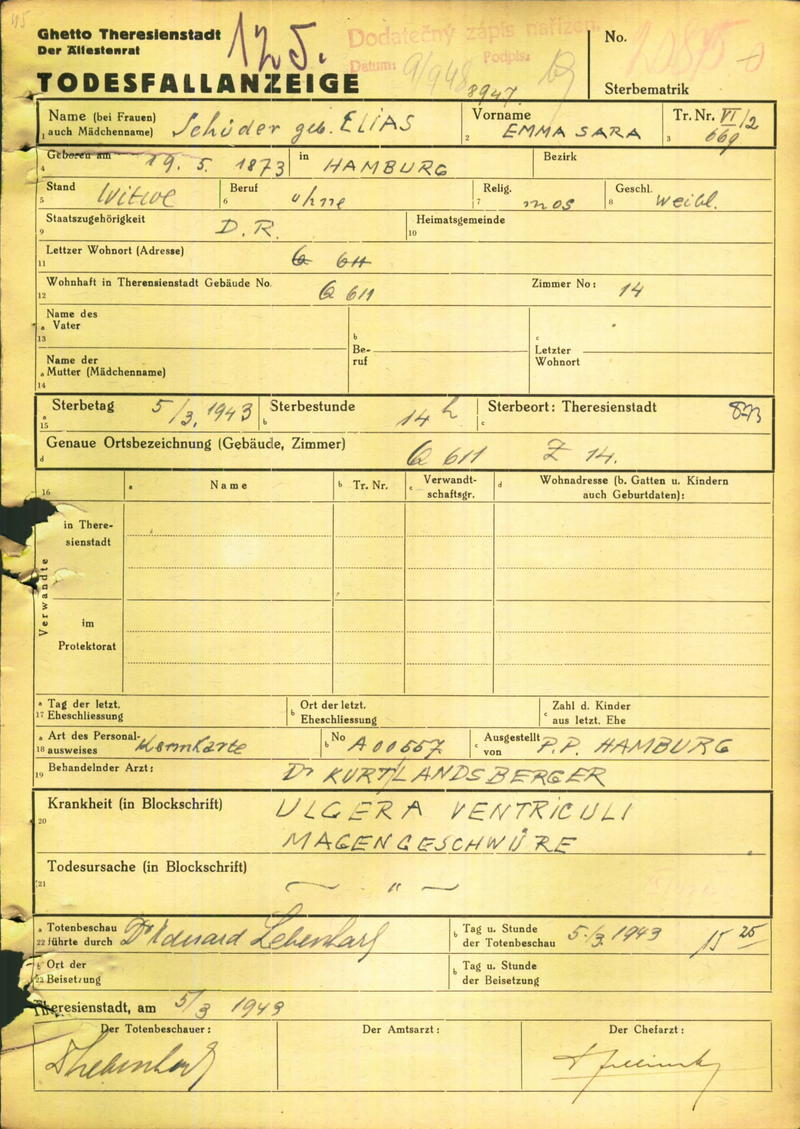 Ghetto Theresienstadt
Der Ältestenrat
125.
TODESFALLANZEIGE
Dodatečný zápis nařízen
Datum: 9/948 Podpis:
8947
No.
Sterbematrik
Name (bei Frauen) auch Mädchenname) Schüder geb. ELIAS
1
Vorname EMMA SARA
2
Tr. Nr. VI/2 669
3
Geboren am 19. 5. 1873 in HAMBURG Bezirk
4
Stand Witwe Beruf ohne Relig. mos Geschl. weibl.
5 6 7 8
Staatszugehörigkeit D. R. Heimatsgemeinde
9 10
Lettzer Wohnort (Adresse) Q 611
11
Wohnhaft in Therensienstadt Gebäude No. Q 611 Zimmer No: 14
12
Name des
a Vater
13
b Beruf
c Letzter Wohnort
Name der
a Mutter (Mädchenname)
14
Sterbetag 5/3. 1943 Sterbestunde 14 h Sterbeort: Theresienstadt 873
a 15 b c
Genaue Ortsbezeichnung (Gebäude, Zimmer) Q 611 Z 14.
d
16 a Name b Tr. Nr. c Verwandt-schaftsgr. d Wohnadresse (b. Gatten u. Kindern auch Geburtdaten):
Verwandte
in There-
sienstadt
im
Protektorat
a Tag der letzt.
17 Eheschliessung
b Ort der letzt.
Eheschliessung
c Zahl d. Kinder
aus letzt. Ehe
a Art des Personal-
18 ausweises Kennkarte
b No A 00557
c Ausgestellt von P.P. HAMBURG
19 Behandelnder Arzt: Dr KURT LANDSBERGER
Krankheit (in Blockschrift) ULCERA VENTRICULI
20
MAGENGESCHWÜRE
Todesursache (in Blockschrift) — " —
21
a Totenbeschau
22 führte durch Dr Eduard
b Tag u. Stunde
der Totenbeschau 5./3. 1943 15 25
b Ort der
Beisetzung
b Tag u. Stunde
der Beisetzung
Theresienstadt, am 5/3 1943
Der Totenbeschauer: Der Amtsarzt: Der Chefarzt: